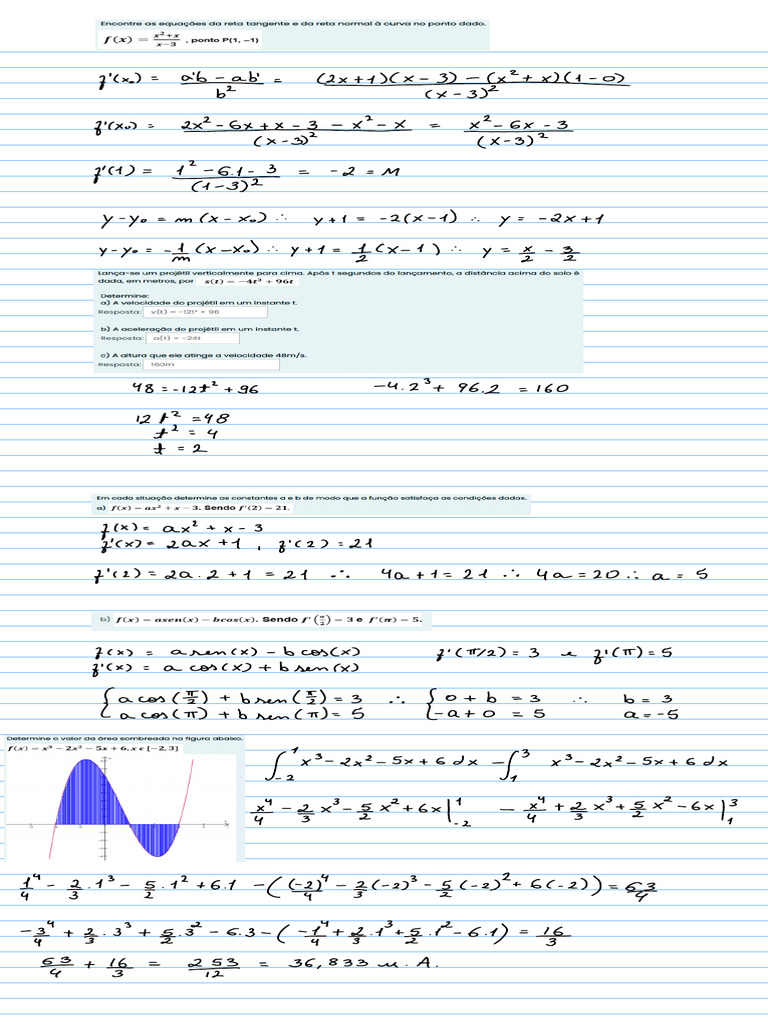 Encontre as equações da reta tangente e da reta normal à curva no ponto dado.
f(x) = (x²+x)/(x−3) , ponto P(1, −1)
f'(x₀) = (a'b − ab')/b² = ((2x+1)(x−3) − (x²+x)(1−0))/(x−3)²
f'(x₀) = (2x² − 6x + x − 3 − x² − x)/(x−3)² = (x² − 6x − 3)/(x−3)²
f'(1) = (1² − 6.1 − 3)/(1−3)² = −2 = M
y−y₀ = m(x−x₀) ∴ y+1 = −2(x−1) ∴ y = −2x+1
y−y₀ = −1/m (x−x₀) ∴ y+1 = 1/2 (x−1) ∴ y = x/2 − 3/2
Lança-se um projétil verticalmente para cima. Após t segundos do lançamento, a distância acima do solo é
dada, em metros, por s(t) = −4t³ + 96t
Determine:
a) A velocidade do projétil em um instante t.
Resposta: v(t) = −12t² + 96
b) A aceleração do projétil em um instante t.
Resposta: a(t) = −24t
c) A altura que ele atinge a velocidade 48m/s.
Resposta: 160m
48 = −12t² + 96 −4.2³ + 96.2 = 160
12t² = 48
t² = 4
t = 2
Em cada situação determine as constantes a e b de modo que a função satisfaça as condições dadas.
a) f(x) = ax² + x − 3. Sendo f'(2) = 21.
f(x) = ax² + x − 3
f'(x) = 2ax + 1 , f'(2) = 21
f'(2) = 2a.2 + 1 = 21 ∴ 4a + 1 = 21 ∴ 4a = 20 ∴ a = 5
b) f(x) = asen(x) − bcos(x). Sendo f'(π/2) = 3 e f'(π) = 5.
f(x) = a sen(x) − b cos(x) f'(π/2) = 3 e f'(π) = 5
f'(x) = a cos(x) + b sen(x)
{ a cos(π/2) + b sen(π/2) = 3 ∴ { 0 + b = 3 ∴ b = 3
{ a cos(π) + b sen(π) = 5 { −a + 0 = 5 a = −5
Determine o valor da área sombreada na figura abaixo.
f(x) = x³ − 2x² − 5x + 6, x ϵ [−2, 3]
∫₋₂¹ x³ − 2x² − 5x + 6 dx − ∫₁³ x³ − 2x² − 5x + 6 dx
x⁴/4 − 2/3 x³ − 5/2 x² + 6x |₋₂¹ − x⁴/4 + 2/3 x³ + 5/2 x² − 6x |₁³
1⁴/4 − 2/3 . 1³ − 5/2 . 1² + 6.1 − ((−2)⁴/4 − 2/3 (−2)³ − 5/2 (−2)² + 6(−2)) = 63/4
−3⁴/4 + 2/3 . 3³ + 5/2 . 3² − 6.3 − (−1⁴/4 + 2/3 . 1³ + 5/2 . 1² − 6.1) = 16/3
63/4 + 16/3 = 253/12 = 36,833 u.A.